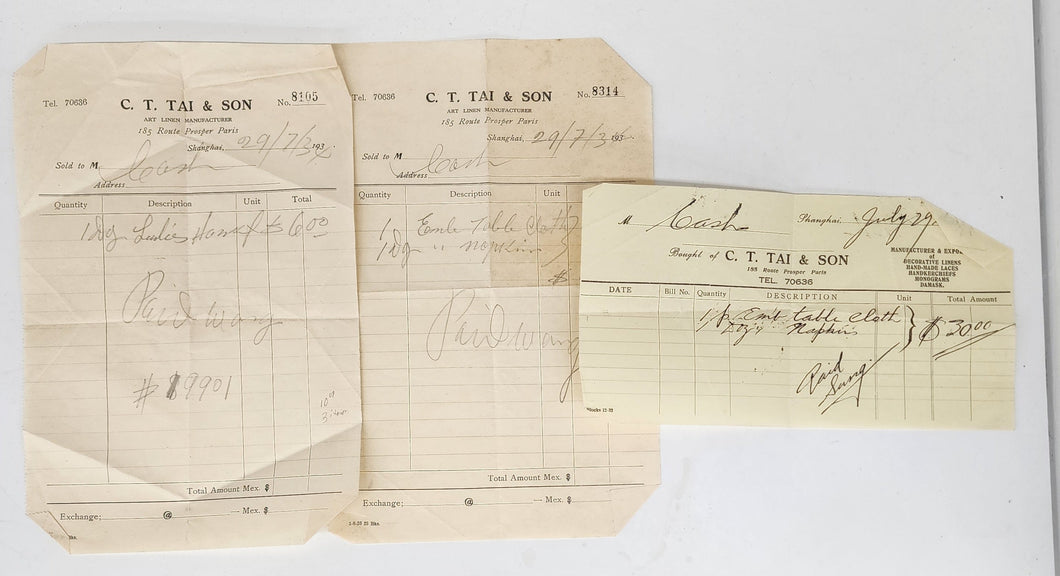 Tel. 70636
C. T. TAI & SON
No. 8105
ART LINEN MANUFACTURER
185 Route Prosper Paris
Shanghai, 29/7/3 193
Sold to M Cash
Address
Quantity Description Unit Total
1 dz Ladies $ 6.00
Paid wang
# 19901
Total Amount Mex. $
Exchange; @ — Mex. $
Bks.
Tel. 70636
C. T. TAI & SON
No. 8314
ART LINEN MANUFACTURER
185 Route Prosper Paris
Shanghai, 29/7/3 193
Sold to M Cash
Address
Quantity Description Unit
1 Emb Table Cloth
1 dz " Napkins
$
Paid wang
Total Amount Mex. $
Exchange; @ — Mex. $
M Cash Shanghai, July 29
Bought of C. T. TAI & SON
185 Route Prosper Paris
TEL. 70636
MANUFACTURER & EXPO
of
DECORATIVE LINENS
HAND-MADE LACES
HANDKERCHIEFS
MONOGRAMS
DAMASK.
DATE Bill No. Quantity DESCRIPTION Unit Total Amount
1 Emb table cloth
Doz " Napkins } $ 30.00
Paid